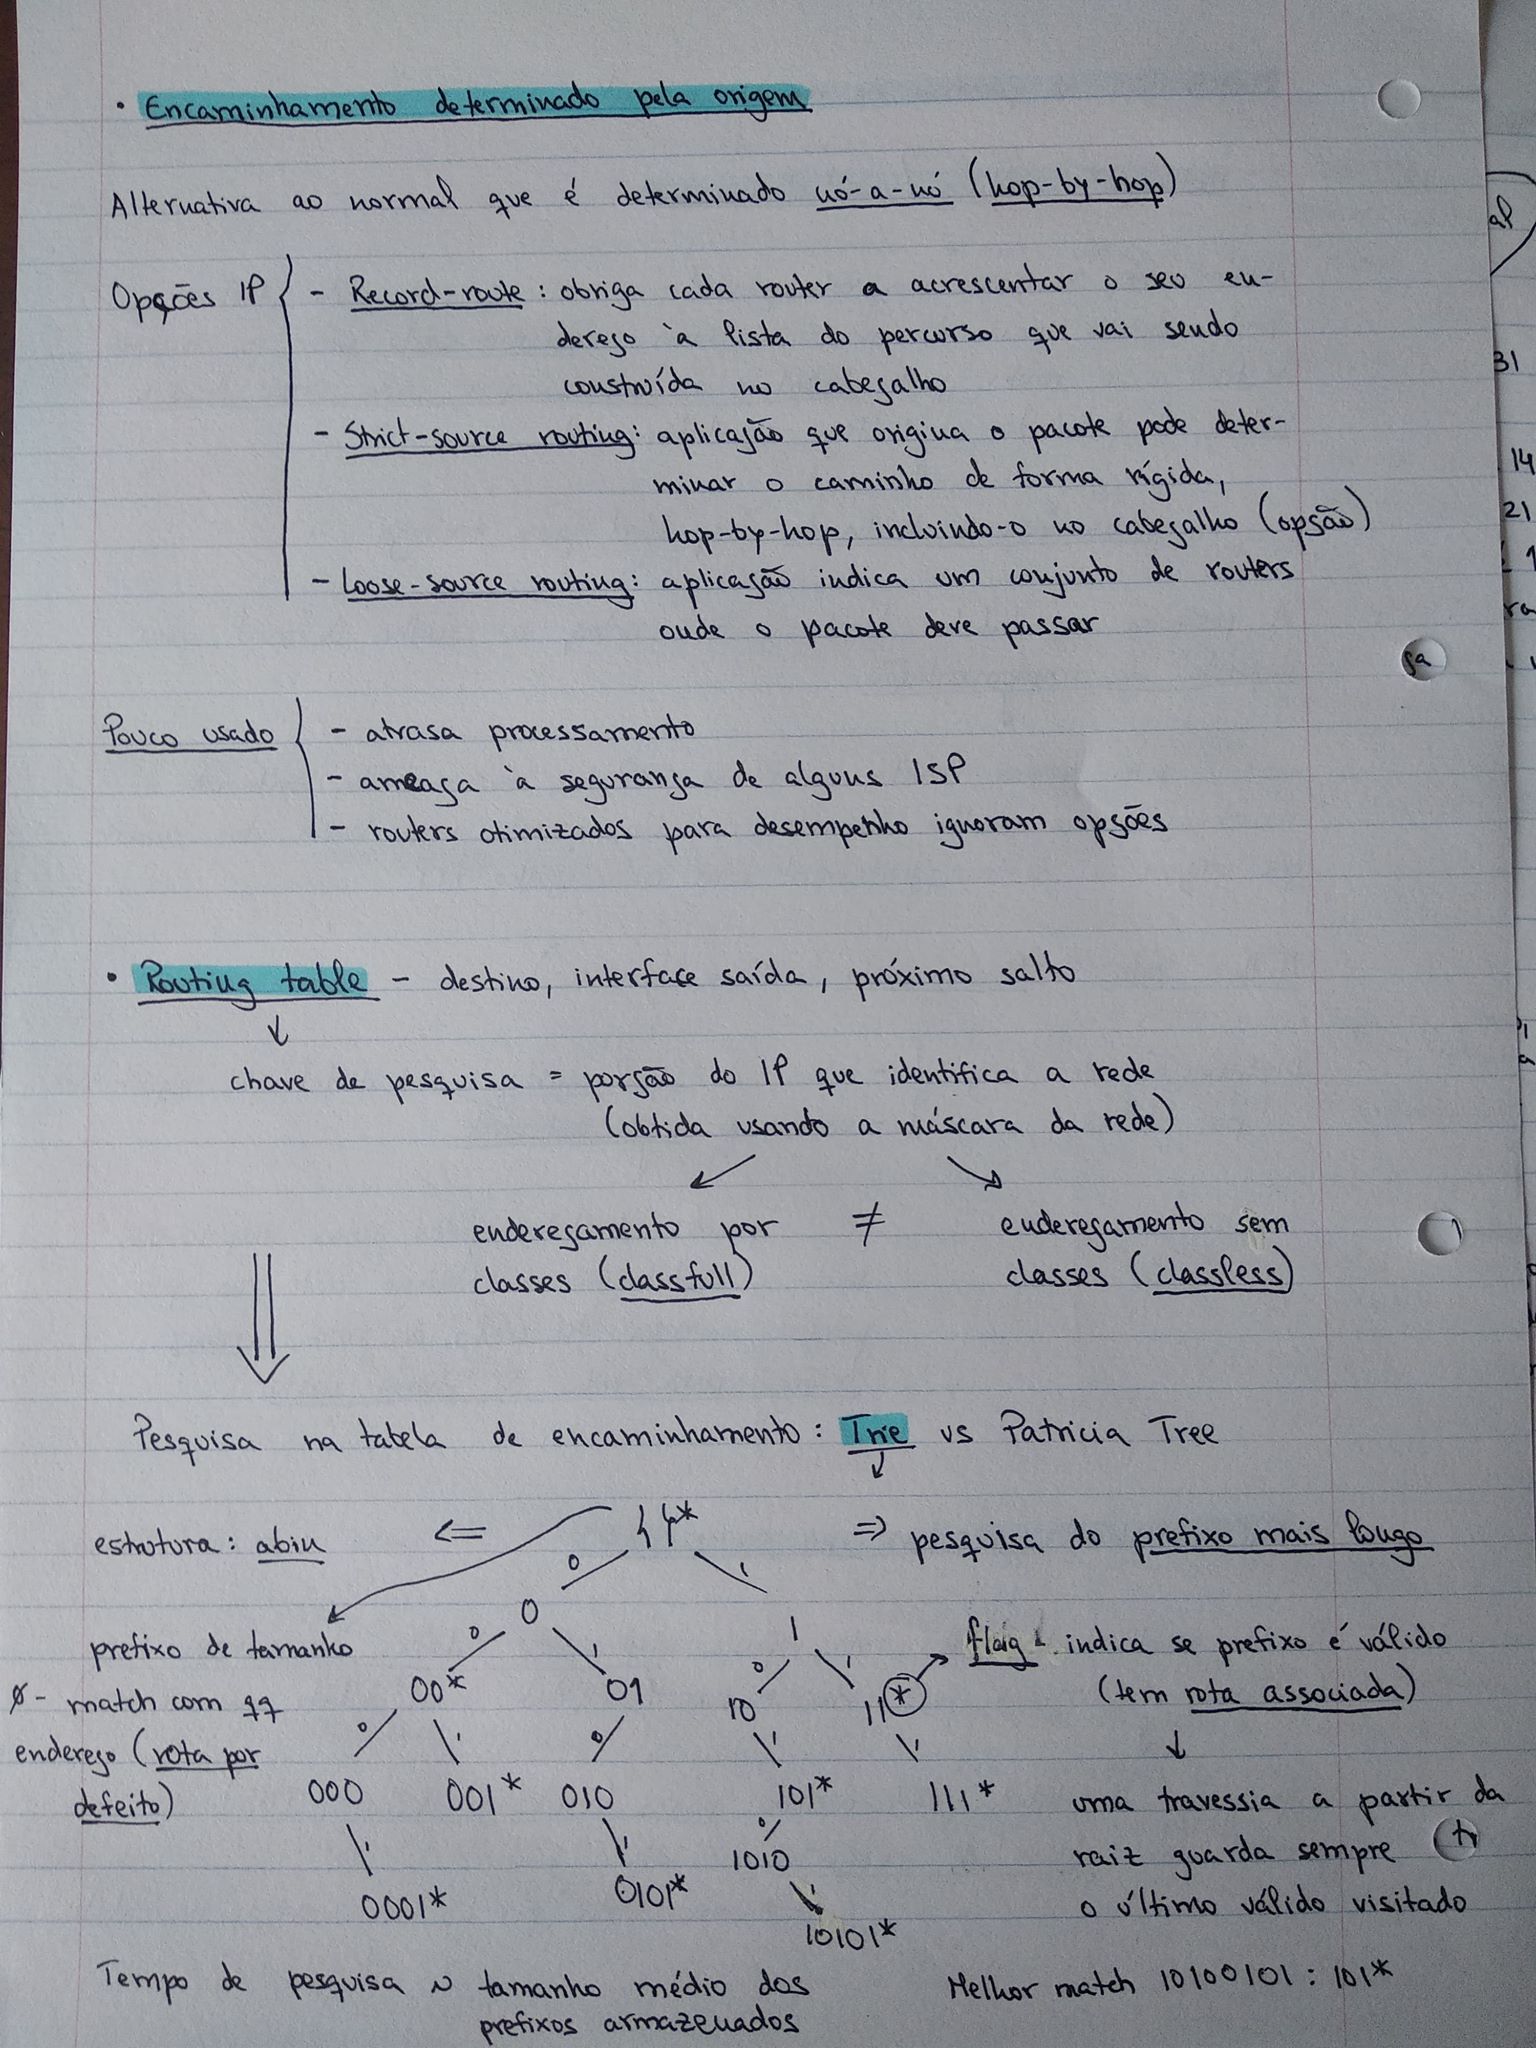 • Encaminhamento determinado pela origem
Alternativa ao normal que é determinado nó-a-nó (hop-by-hop)
Opções IP { - Record-route : obriga cada router a acrescentar o seu en-
dereço à lista do percurso que vai sendo
construída no cabeçalho
- Strict-source routing: aplicação que origina o pacote pode deter-
minar o caminho de forma rígida,
hop-by-hop, incluindo-o no cabeçalho (opção)
- Loose-source routing: aplicação indica um conjunto de routers
onde o pacote deve passar
Pouco usado { - atrasa processamento
- ameaça à segurança de alguns ISP
- routers otimizados para desempenho ignoram opções
• Routing table - destino, interface saída, próximo salto
↓
chave de pesquisa = porção do IP que identifica a rede
(obtida usando a máscara da rede)
↙ ↘
endereçamento por ≠ endereçamento sem
classes (classfull) classes (classless)
⇓
Pesquisa na tabela de encaminhamento : Trie vs Patricia Tree
↓
estrutura : abin ⇐ { }* ⇒ pesquisa do prefixo mais longo
0 1
0 1
prefixo de tamanho 0 1 0 1 flag - indica se prefixo é válido
ø - match com qq 00* 01 10 11* (tem rota associada)
0 1 0 1 1 ↓
endereço (rota por
defeito) 000 001* 010 101* 111* uma travessia a partir da
1 1 0
1010 raiz guarda sempre
0001* 0101* 1 o último válido visitado
10101*
Tempo de pesquisa ~ tamanho médio dos Melhor match 10100101 : 101*
prefixos armazenados
al
31
14
21
ra
ça